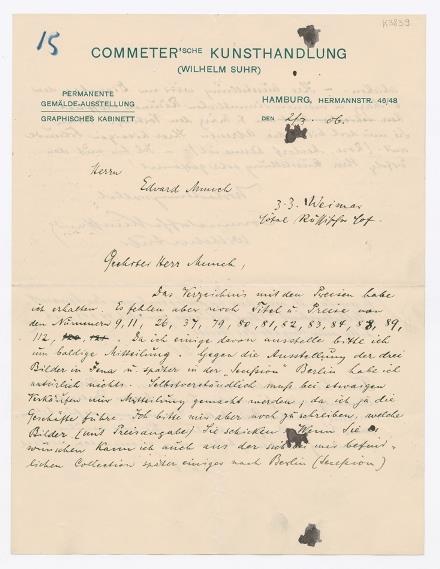 15
K3839
COMMETER'SCHE KUNSTHANDLUNG
(WILHELM SUHR)
PERMANENTE
GEMÄLDE-AUSSTELLUNG
GRAPHISCHES KABINETT
HAMBURG, HERMANNSTR. 46/48
DEN 2/3. 06.
Herrn
Edvard Munch
z.Z. Weimar
Hôtel Russischer Hof.
Geehrter Herr Munch,
Das Verzeichnis mit den Preisen habe
ich erhalten. Es fehlen aber noch Titel u Preise von
den Nummern 9, 11, 26, 37, 79, 80, 81, 82, 83, 84, 89,
112, . Da ich einige davon ausstelle bitte ich
um baldige Mitteilung. Gegen die Ausstellung der drei
Bilder in Jena u später in der „Secession" Berlin habe ich
natürlich nichts. Selbstverständlich muß bei etwaigen
Verkäufen mir Mitteilung gemacht werden, da ich ja die
Geschäfte führe. Ich bitte mir aber noch zu schreiben, welche
Bilder (mit Preisangabe) Sie schicken. Wenn Sie es
wünschen kann ich auch aus der bei mir befind-
lichen Collection später einiges nach Berlin (Secession)